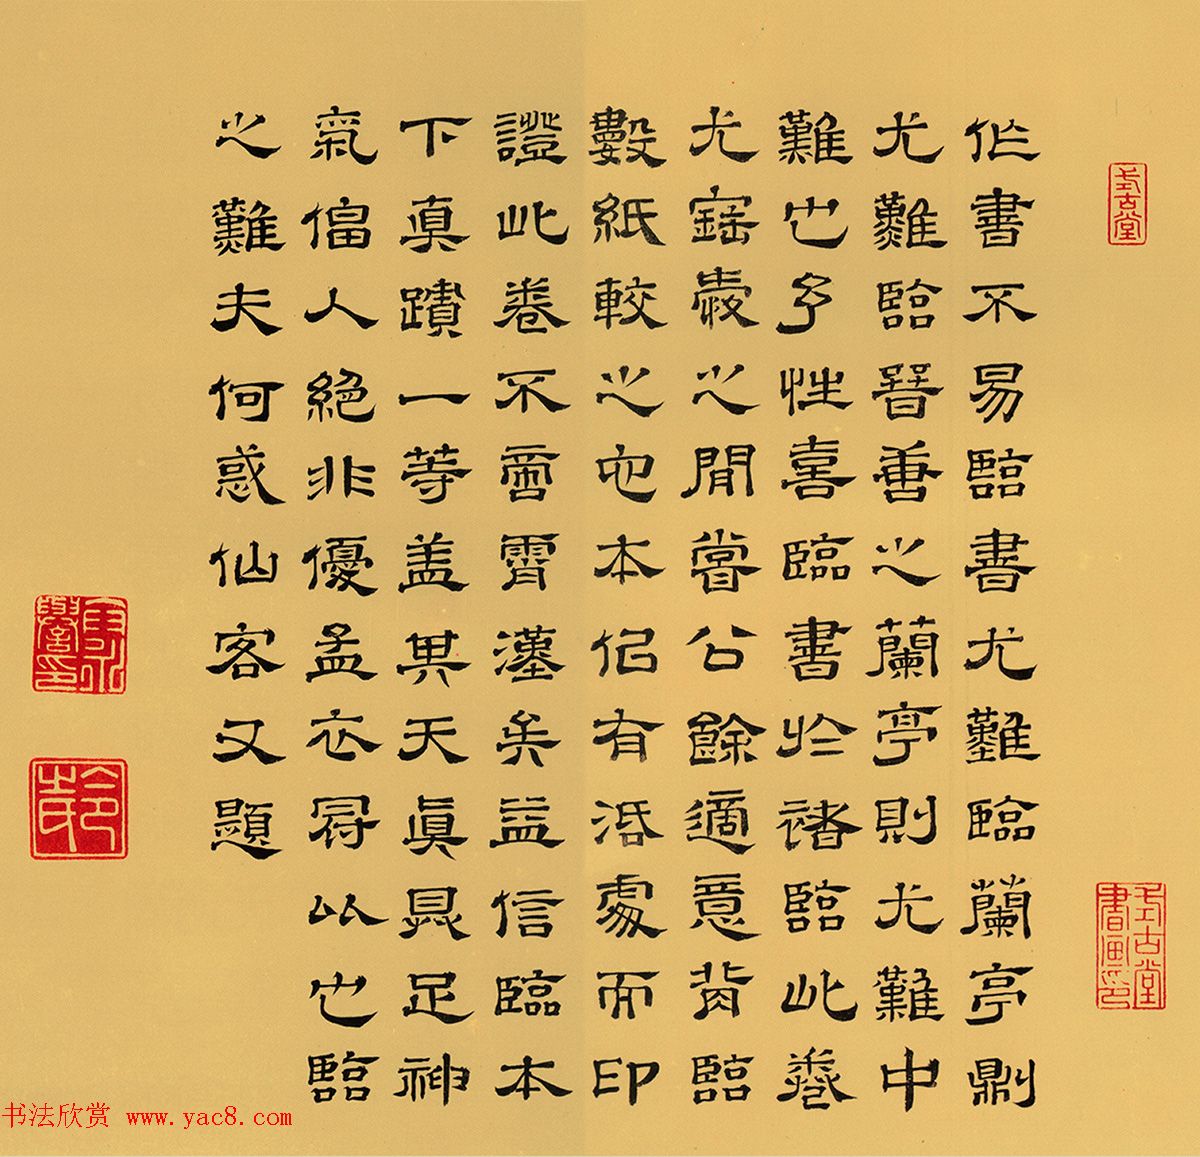 式古堂
作書不易臨書尤難臨蘭亭則
尤難臨晉善之蘭亭則尤難中
難也予性喜臨書於褚臨此卷
尤寶愛之閒嘗公餘適意背臨
數紙較之它本侣有活處而印
證此卷不啻霄漢矣益信臨本
下真蹟一等盖其天真具足神
氣偪人絕非優孟衣冠以也臨
之難夫何惑仙客又題
式古堂書畫印
书法欣赏 www.yac8.com